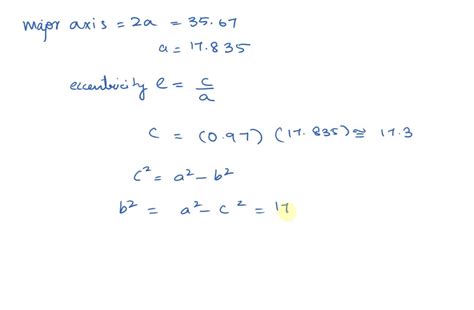 major axis = 2a = 35.67
a = 17.835
eccentricity e = c/a
c = (0.97) (17.835) ≅ 17.3
c² = a² - b²
b² = a² - c² = 17